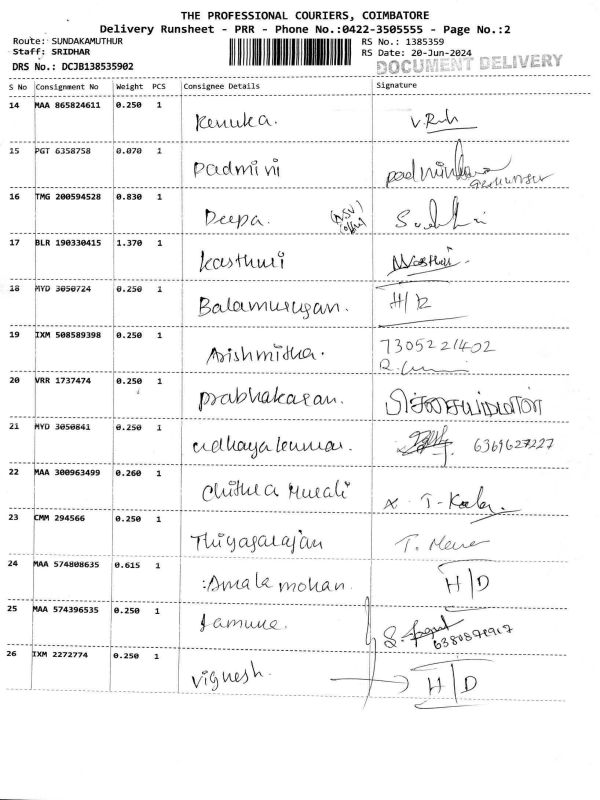 THE PROFESSIONAL COURIERS, COIMBATORE
Delivery Runsheet - PRR - Phone No.:0422-3505555 - Page No.:2
Route: SUNDAKAMUTHUR RS No.: 1385359
Staff: SRIDHAR RS Date: 20-Jun-2024
DRS No.: DCJB138535902 DOCUMENT DELIVERY
S No Consignment No Weight PCS Consignee Details Signature
14 MAA 865824611 0.250 1
Renuka.
15 PGT 6358758 0.070 1
Padmini
16 TMG 200594528 0.830 1
Deepa.
17 BLR 190330415 1.370 1
Kasthuri
18 MYD 3050724 0.250 1
Balamurugan.
19 IXM 508589398 0.250 1
7305221402
Arishmitha.
20 VRR 1737474 0.250 1
Prabhakaran.
21 MYD 3050841 0.250 1
udhayakumar. 6369627227
22 MAA 300963499 0.260 1
Chithra Murali
23 CMM 294566 0.250 1
Thiyagarajan
24 MAA 574808635 0.615 1
Amala mohan. H/D
25 MAA 574396535 0.250 1
Jamuna.
26 IXM 2272774 0.250 1
Vignesh. H/D